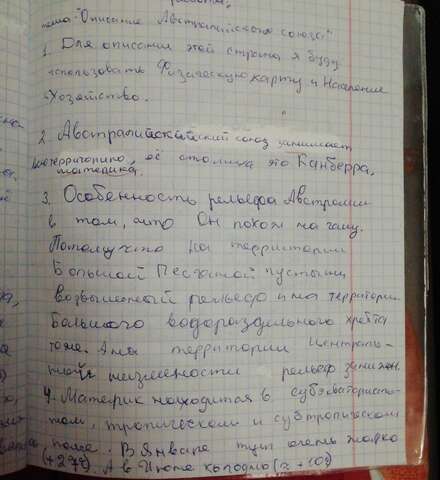 тема "Описание Австралийского союза."
1. Для описания этой страны я буду
использовать Физическую карту и Население
и Хозяйство.
2. Австралийский союз занимает
всю территорию, её столица это Канберра.
материка
3. Особенность рельефа Австралии
в том, что Он похож на чашу.
Потому что на территории
Большой Песчаной пустыни
возвышенный рельеф и на территории
Большого водораздельного хребта
тоже. А на территории Централь-
ной низменности рельеф занижен.
4. Материк находится в субэкваториаль-
ном, тропическом и субтропическом
поясе. В Январе тут очень жарко
(+27°). А в Июле холодно (+10°)